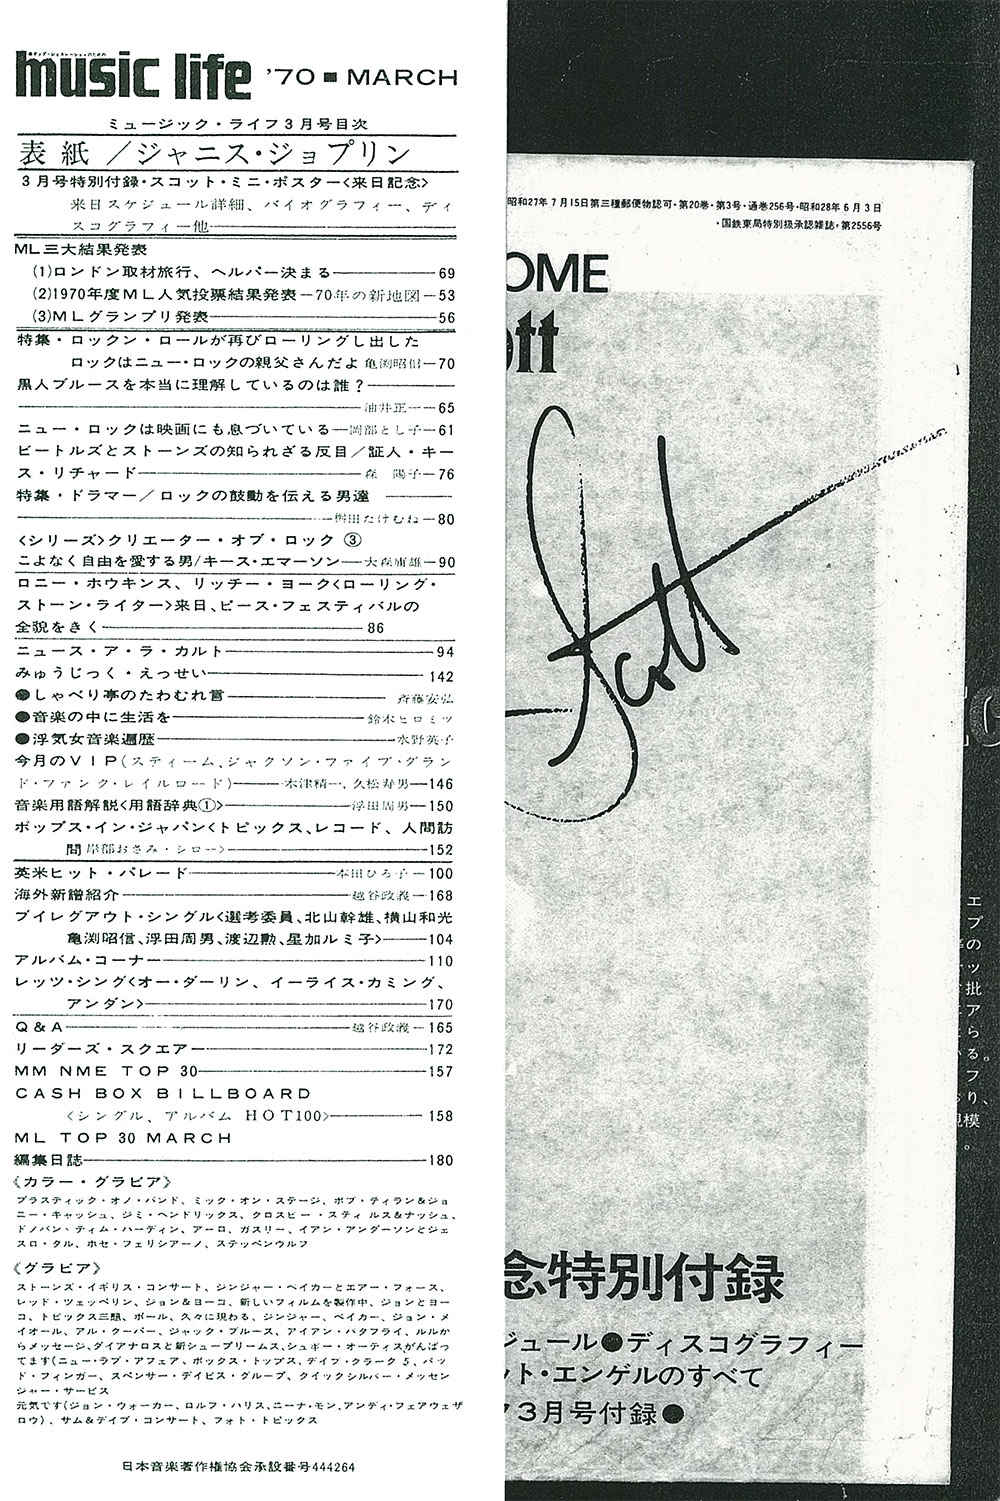 ●ポップ・ジェネレーションのための
music life '70 ■ MARCH
ミュージック・ライフ3月号目次
表紙／ジャニス・ジョプリン
3月号特別付録・スコット・ミニ・ポスター〈来日記念〉
来日スケジュール詳細、バイオグラフィー、ディ
スコグラフィー他
ML三大結果発表
(1)ロンドン取材旅行、ヘルパー決まる──69
(2)1970年度ML人気投票結果発表－70年の新地図－53
(3)MLグランプリ発表──56
特集・ロックン・ロールが再びローリングし出した
ロックはニュー・ロックの親父さんだよ 亀渕昭信─70
黒人ブルースを本当に理解しているのは誰？──
──油井正一─65
ニュー・ロックは映画にも息づいている─岡部とし子─61
ビートルズとストーンズの知られざる反目／証人・キー
ス・リチャード──森 陽子─76
特集・ドラマー／ロックの鼓動を伝える男達 ──
──桝田たけむね─80
〈シリーズ〉クリエーター・オブ・ロック ③
こよなく自由を愛する男/キース・エマーソン──大森庸雄─90
ロニー・ホウキンス、リッチー・ヨーク〈ローリング・
ストーン・ライター〉来日、ピース・フェスティバルの
全貌をきく──86
ニュース・ア・ラ・カルト──94
みゅうじっく・えっせい──142
●しゃべり亭のたわむれ言──斉藤安弘
●音楽の中に生活を──鈴木ヒロミツ
●浮気女音楽遍歴──水野英子
今月のVIP(スティーム、ジャクソン・ファイブ・グラン
ド・ファンク・レイルロード)──木津精一、久松寿男─146
音楽用語解説〈用語辞典①〉──浮田周男─150
ポップス・イン・ジャパン〈トピックス、レコード、人間訪
問 岸部おさみ・シロー〉──152
英米ヒット・パレード──本田ひろ子─100
海外新譜紹介──越谷政義─168
プイレグアウト・シングル〈選考委員、北山幹雄、横山和光
亀渕昭信、浮田周男、渡辺勲、星加ルミ子〉──104
アルバム・コーナー──110
レッツ・シング〈オー・ダーリン、イーライス・カミング、
アンダン〉──170
Q&A──越谷政義─165
リーダーズ・スクエアー──172
MM NME TOP 30──157
CASH BOX BILLBOARD
〈シングル、アルバム HOT100〉──158
ML TOP 30 MARCH
編集日誌──180
《カラー・グラビア》
プラスティック・オノ・バンド、ミック・オン・ステージ、ボブ・ディラン&ジョ
ニー・キャッシュ、ジミ・ヘンドリックス、クロスビー・スティルス&ナッシュ、
ドノバン・ティム・ハーディン、アーロ、ガスリー、イアン・アンダーソンとジェ
スロ・タル、ホセ・フェリシアーノ、ステッペンウルフ
《グラビア》
ストーンズ・イギリス・コンサート、ジンジャー・ベイカーとエアー・フォース、
レッド・ツェッペリン、ジョン&ヨーコ、新しいフィルムを製作中、ジョンとヨー
コ、トピックス三題、ポール、久々に現わる、ジンジャー、ベイカー、ジョン・メ
イオール、アル・クーパー、ジャック・ブルース、アイアン・バタフライ、ルルか
らメッセージ、ダイアナロスと新シュープリームス、シュギー・オーティスがんばっ
てます(ニュー・ラブ・アフェア、ボックス・トップス、デイブ・クラーク5、バッ
ド・フィンガー、スペンサー・デイビス・グループ、クイックシルバー・メッセン
ジャー・サービス
元気です(ジョン・ウォーカー、ロルフ・ハリス、ニーナ・モン、アンディ・フェアウェザ
ロウ)、サム&デイブ・コンサート、フォト・トピックス
日本音楽著作権協会承認番号444264
昭和27年7月15日第三種郵便物認可・第20巻・第3号・通巻256号・昭和28年6月3日
・国鉄東局特別扱承認雑誌・第2556号
OME
ott
Scott
念特別付録
ジュール●ディスコグラフィー
ット・エンゲルのすべて
3月号付録●
エ
プ
の
ッ
批
ア
ら
る。
フ
り、
模
。